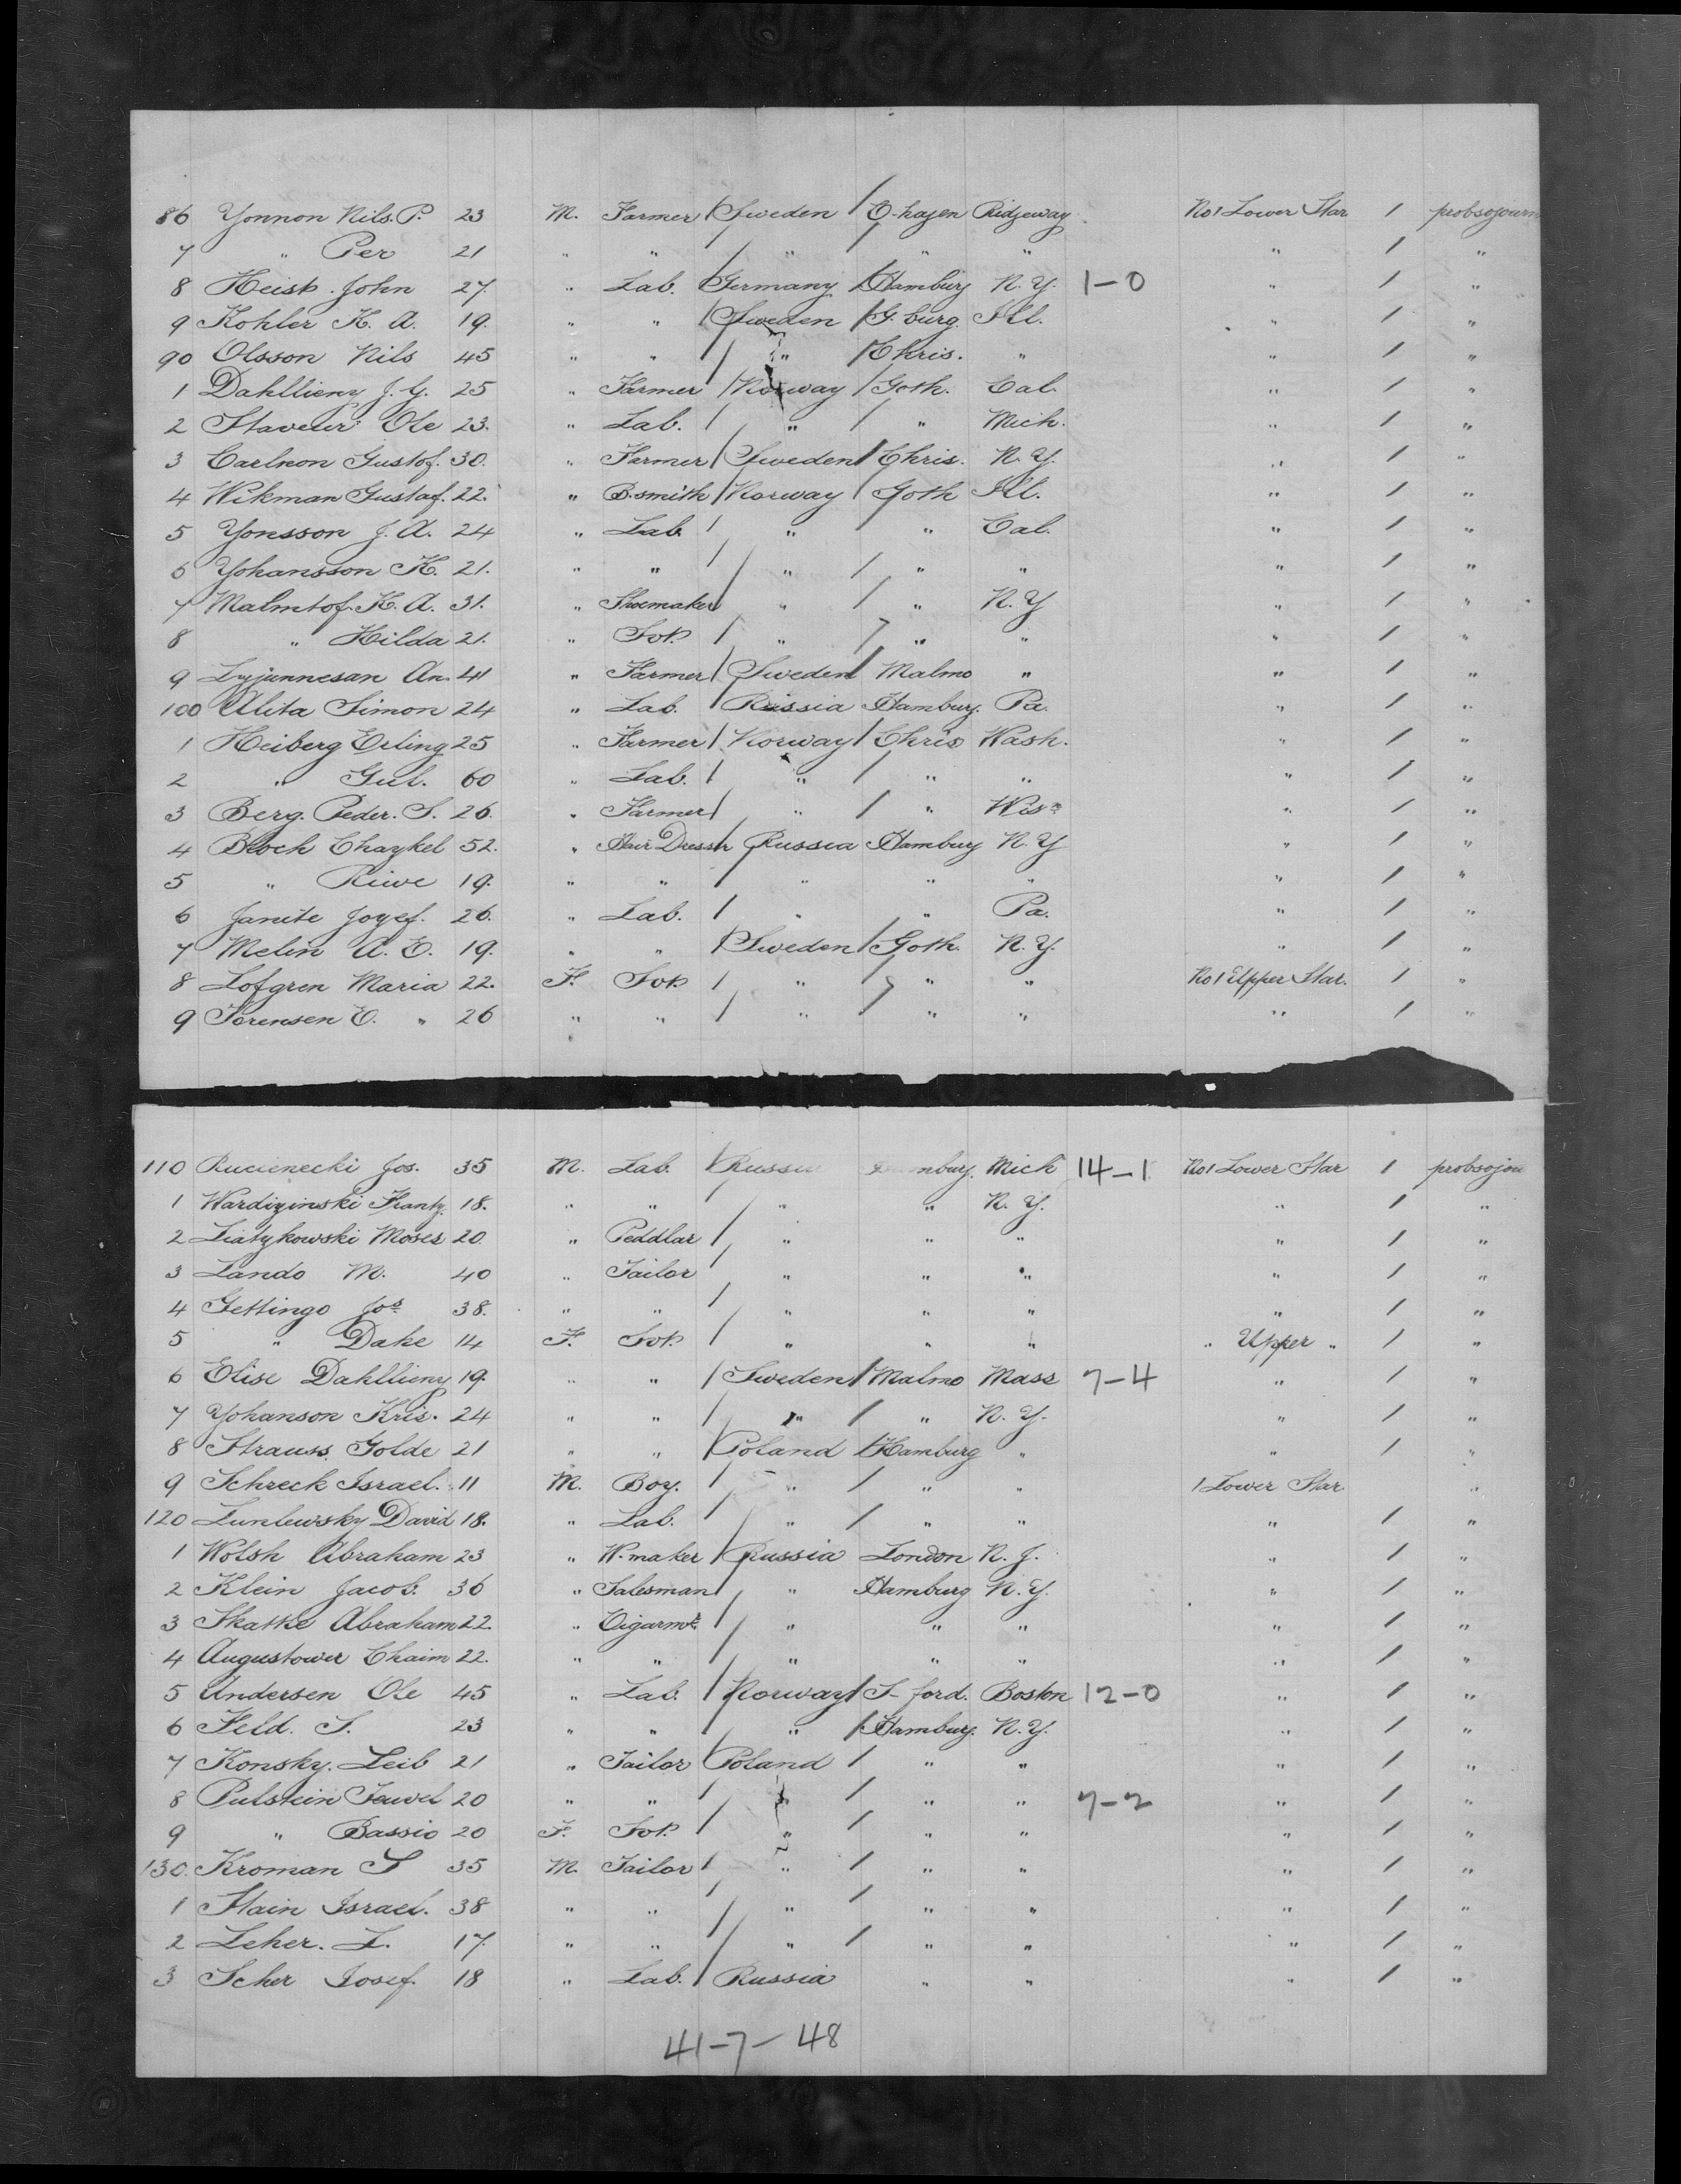 86 Yonnon Nils. P. 23 M. Farmer / Sweden / C-hagen Ridgeway No 1 Lower Star 1 probsojourn
7 " Per 21 " " / " / " " " 1 "
8 Heisk. John 27. " Lab. / Germany / Hamburg N.Y. 1-0 " 1 "
9 Kohler K. A. 19. " " / Sweden / G. burg. Ill. " 1 "
90 Olsson Nils 45 " " / " / Chris. " " 1 "
1 Dahllieny J. G. 25 " Farmer / Norway / Goth. Cal. " 1 "
2 Ole 23. " Lab. / " / " Mich. " 1 "
3 Carlnon Gustof. 30. " Farmer / Sweden / Chris. N.Y. " 1 "
4 Wikman Gustaf. 22. " B.smith / Norway / Goth Ill. " 1 "
5 Yonsson J. A. 24 " Lab. / " / " Cal. " 1 "
6 Yohansson K. 21. " " / " / " " " 1 "
7 Malmtof. K. A. 31. " Shoemaker / " / " N.Y " 1 "
8 " Hilda 21. " / " / " " " 1 "
9 An. 41 " Farmer / Sweden / Malmo " " 1 "
100 Alita Simon 24 " Lab. / Russia Hamburg. Pa. " 1 "
1 Heiberg Erling 25 " Farmer / Norway / Chris Wash. " 1 "
2 " Gul. 60 " Lab. / " / " " " 1 "
3 Berg. Peder. S. 26. " Farmer / " / " Wisn " 1 "
4 Bloch Chaykel 52. " Hair Dressr / Russia Hamburg N.Y " 1 "
5 " Riwe 19. " " / " " " " 1 "
6 Janite Jozef. 26. " Lab. / " " Pa. " 1 "
7 Melin A. E. 19. " " / Sweden / Goth. N.Y. " 1 "
8 Lofgren Maria 22. F. / " / " " No 1 Upper Star. 1 "
9 Sorensen E. " 26 " " / " / " " " 1 "
110 Rucienecki Jos. 35 M. Lab. / Russia Hamburg. Mich 14-1 No 1 Lower Star 1 probsojou
1 Wardizinski Frantz. 18. " " / " " N.Y. " 1 "
2 Liatykowski Moses 20. " Peddlar / " " " " 1 "
3 Lando M. 40 " Tailor / " " " " 1 "
4 Gettingo Jos 38. " " / " " " " 1 "
5 " Dake 14 F. / " " " " Upper " 1 "
6 Elise Dahllieny 19. " " / Sweden / Malmo Mass 7-4 " 1 "
7 Yohanson Kris. 24 " " / " / " N.Y. " 1 "
8 Strauss. Golde 21 " " / Poland / Hamburg " " 1 "
9 Schreck Israel. 11 M. Boy. / " / " " 1 Lower Star "
120 Lunlewsky David 18. " Lab. / " / " " " 1 "
1 Wolsh Abraham 23 " W. maker / Russia London N.J. " 1 "
2 Klein Jacob. 36 " Salesman / " Hamburg N.Y. " 1 "
3 Skatke Abraham 22. " Cigarmr. / " " " " 1 "
4 Augustower Chaim 22. " " / " " " " 1 "
5 Andersen Ole 45 " Lab. / Norway / S-ford. Boston 12-0 " 1 "
6 Feld. S. 23 " " / " / Hamburg. N.Y. " 1 "
7 Konsky. Leib 21 " Tailor / Poland / " " " 1 "
8 Pulstein 20 " " / " / " " 7-2 " 1 "
9 " Bassio 20 F. / " / " " " 1 "
130. Kroman S 35 M. Tailor / " / " " " 1 "
1 Stain Israel. 38 " " / " / " " " 1 "
2 Leher. L. 17. " " / " / " " " 1 "
3 Scher Josef. 18 " Lab. / Russia " " " 1 "
41-7-48